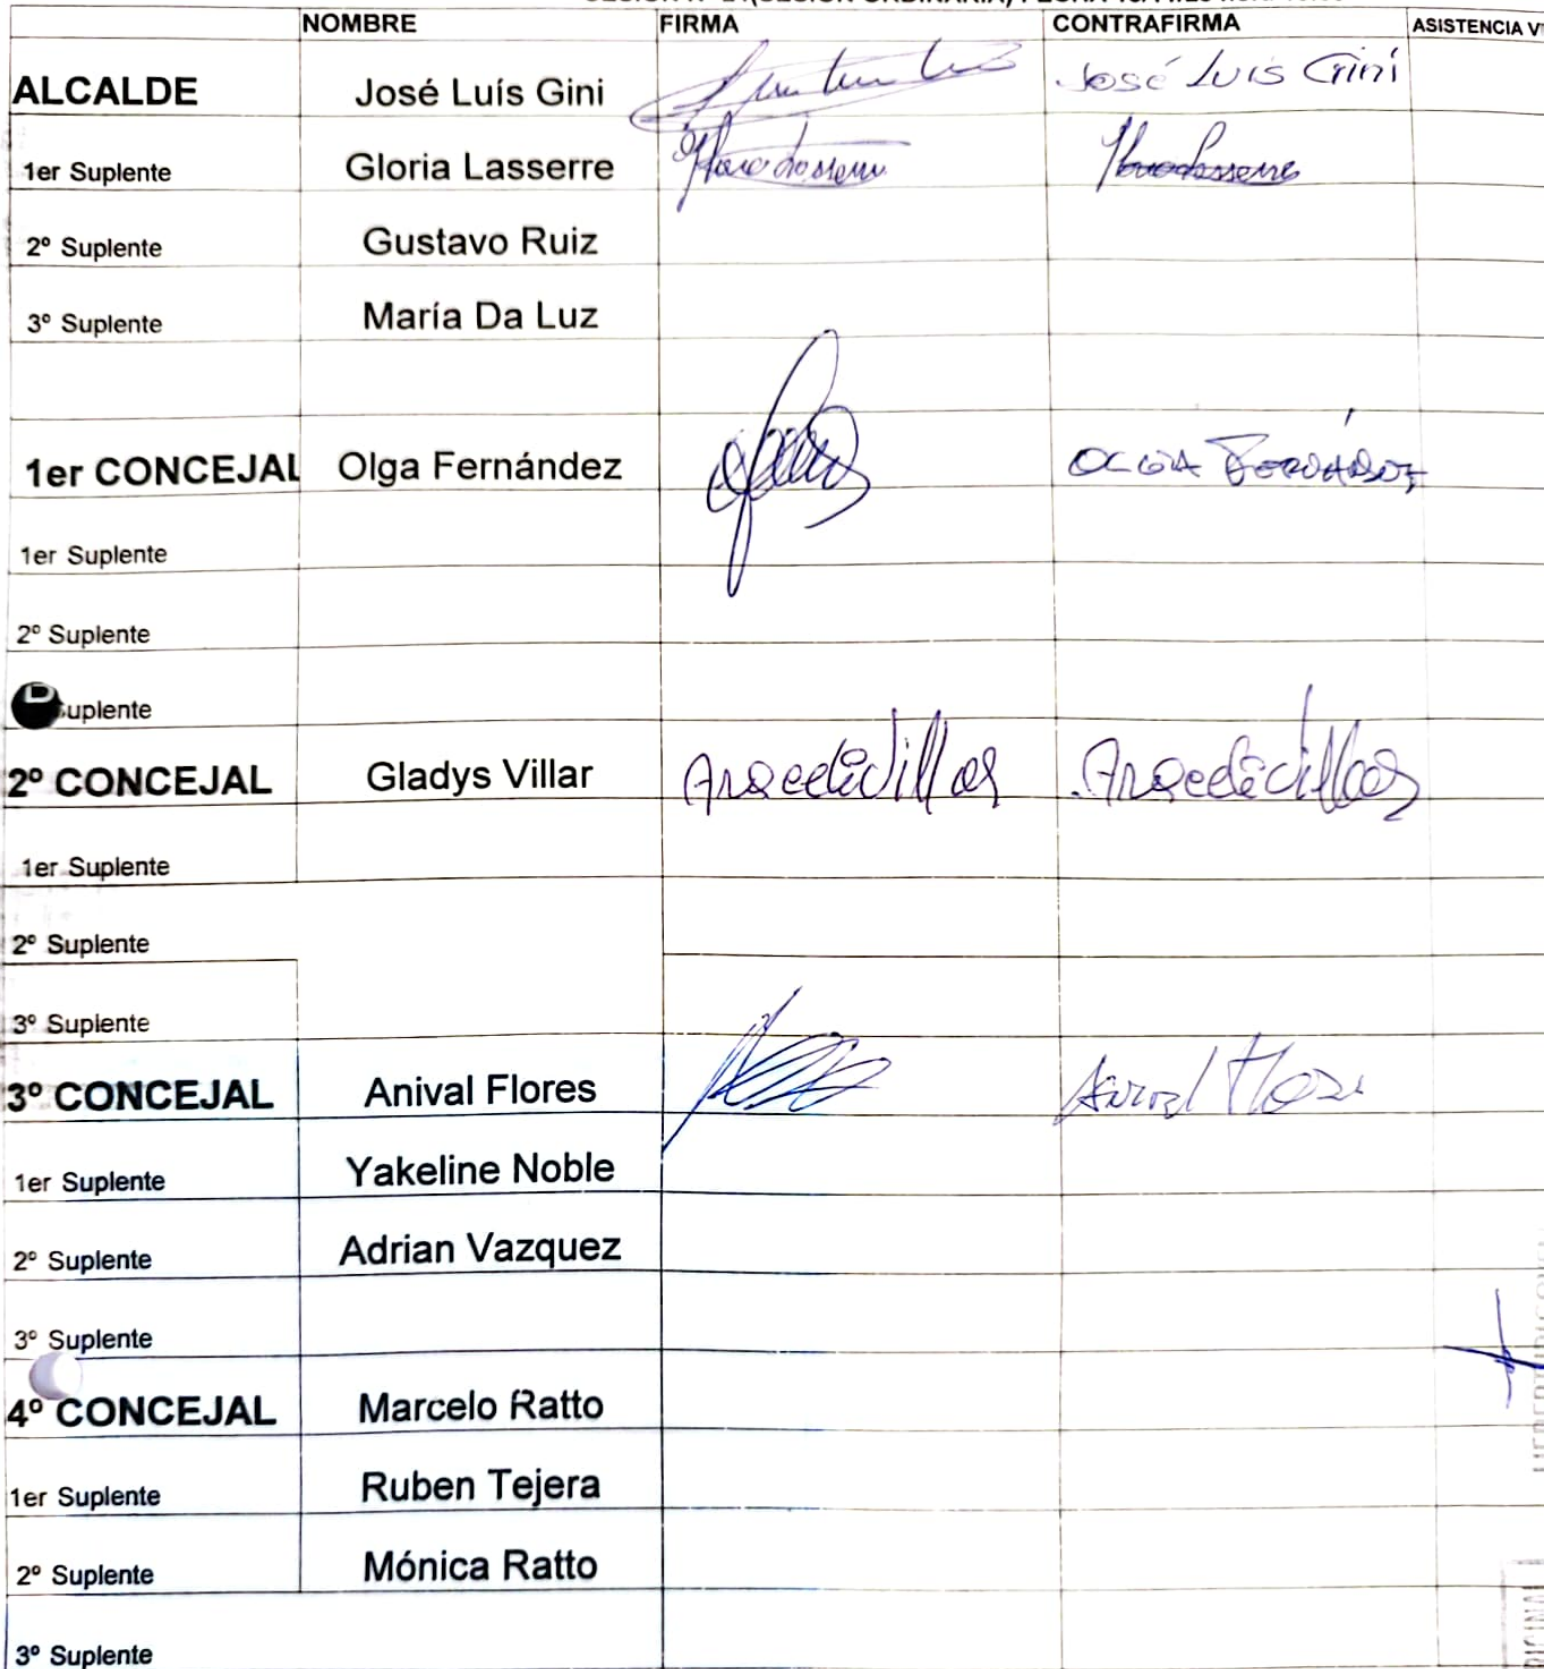 NOMBRE FIRMA CONTRAFIRMA ASISTENCIA
ALCALDE José Luís Gini José Luis Gini
1er Suplente Gloria Lasserre
2º Suplente Gustavo Ruiz
3º Suplente María Da Luz
1er CONCEJAL Olga Fernández OLGA FERNÁNDEZ
1er Suplente
2º Suplente
uplente
2º CONCEJAL Gladys Villar
1er Suplente
2º Suplente
3º Suplente
3º CONCEJAL Anival Flores Anival Flores
1er Suplente Yakeline Noble
2º Suplente Adrian Vazquez
3º Suplente
4º CONCEJAL Marcelo Ratto
1er Suplente Ruben Tejera
2º Suplente Mónica Ratto
3º Suplente